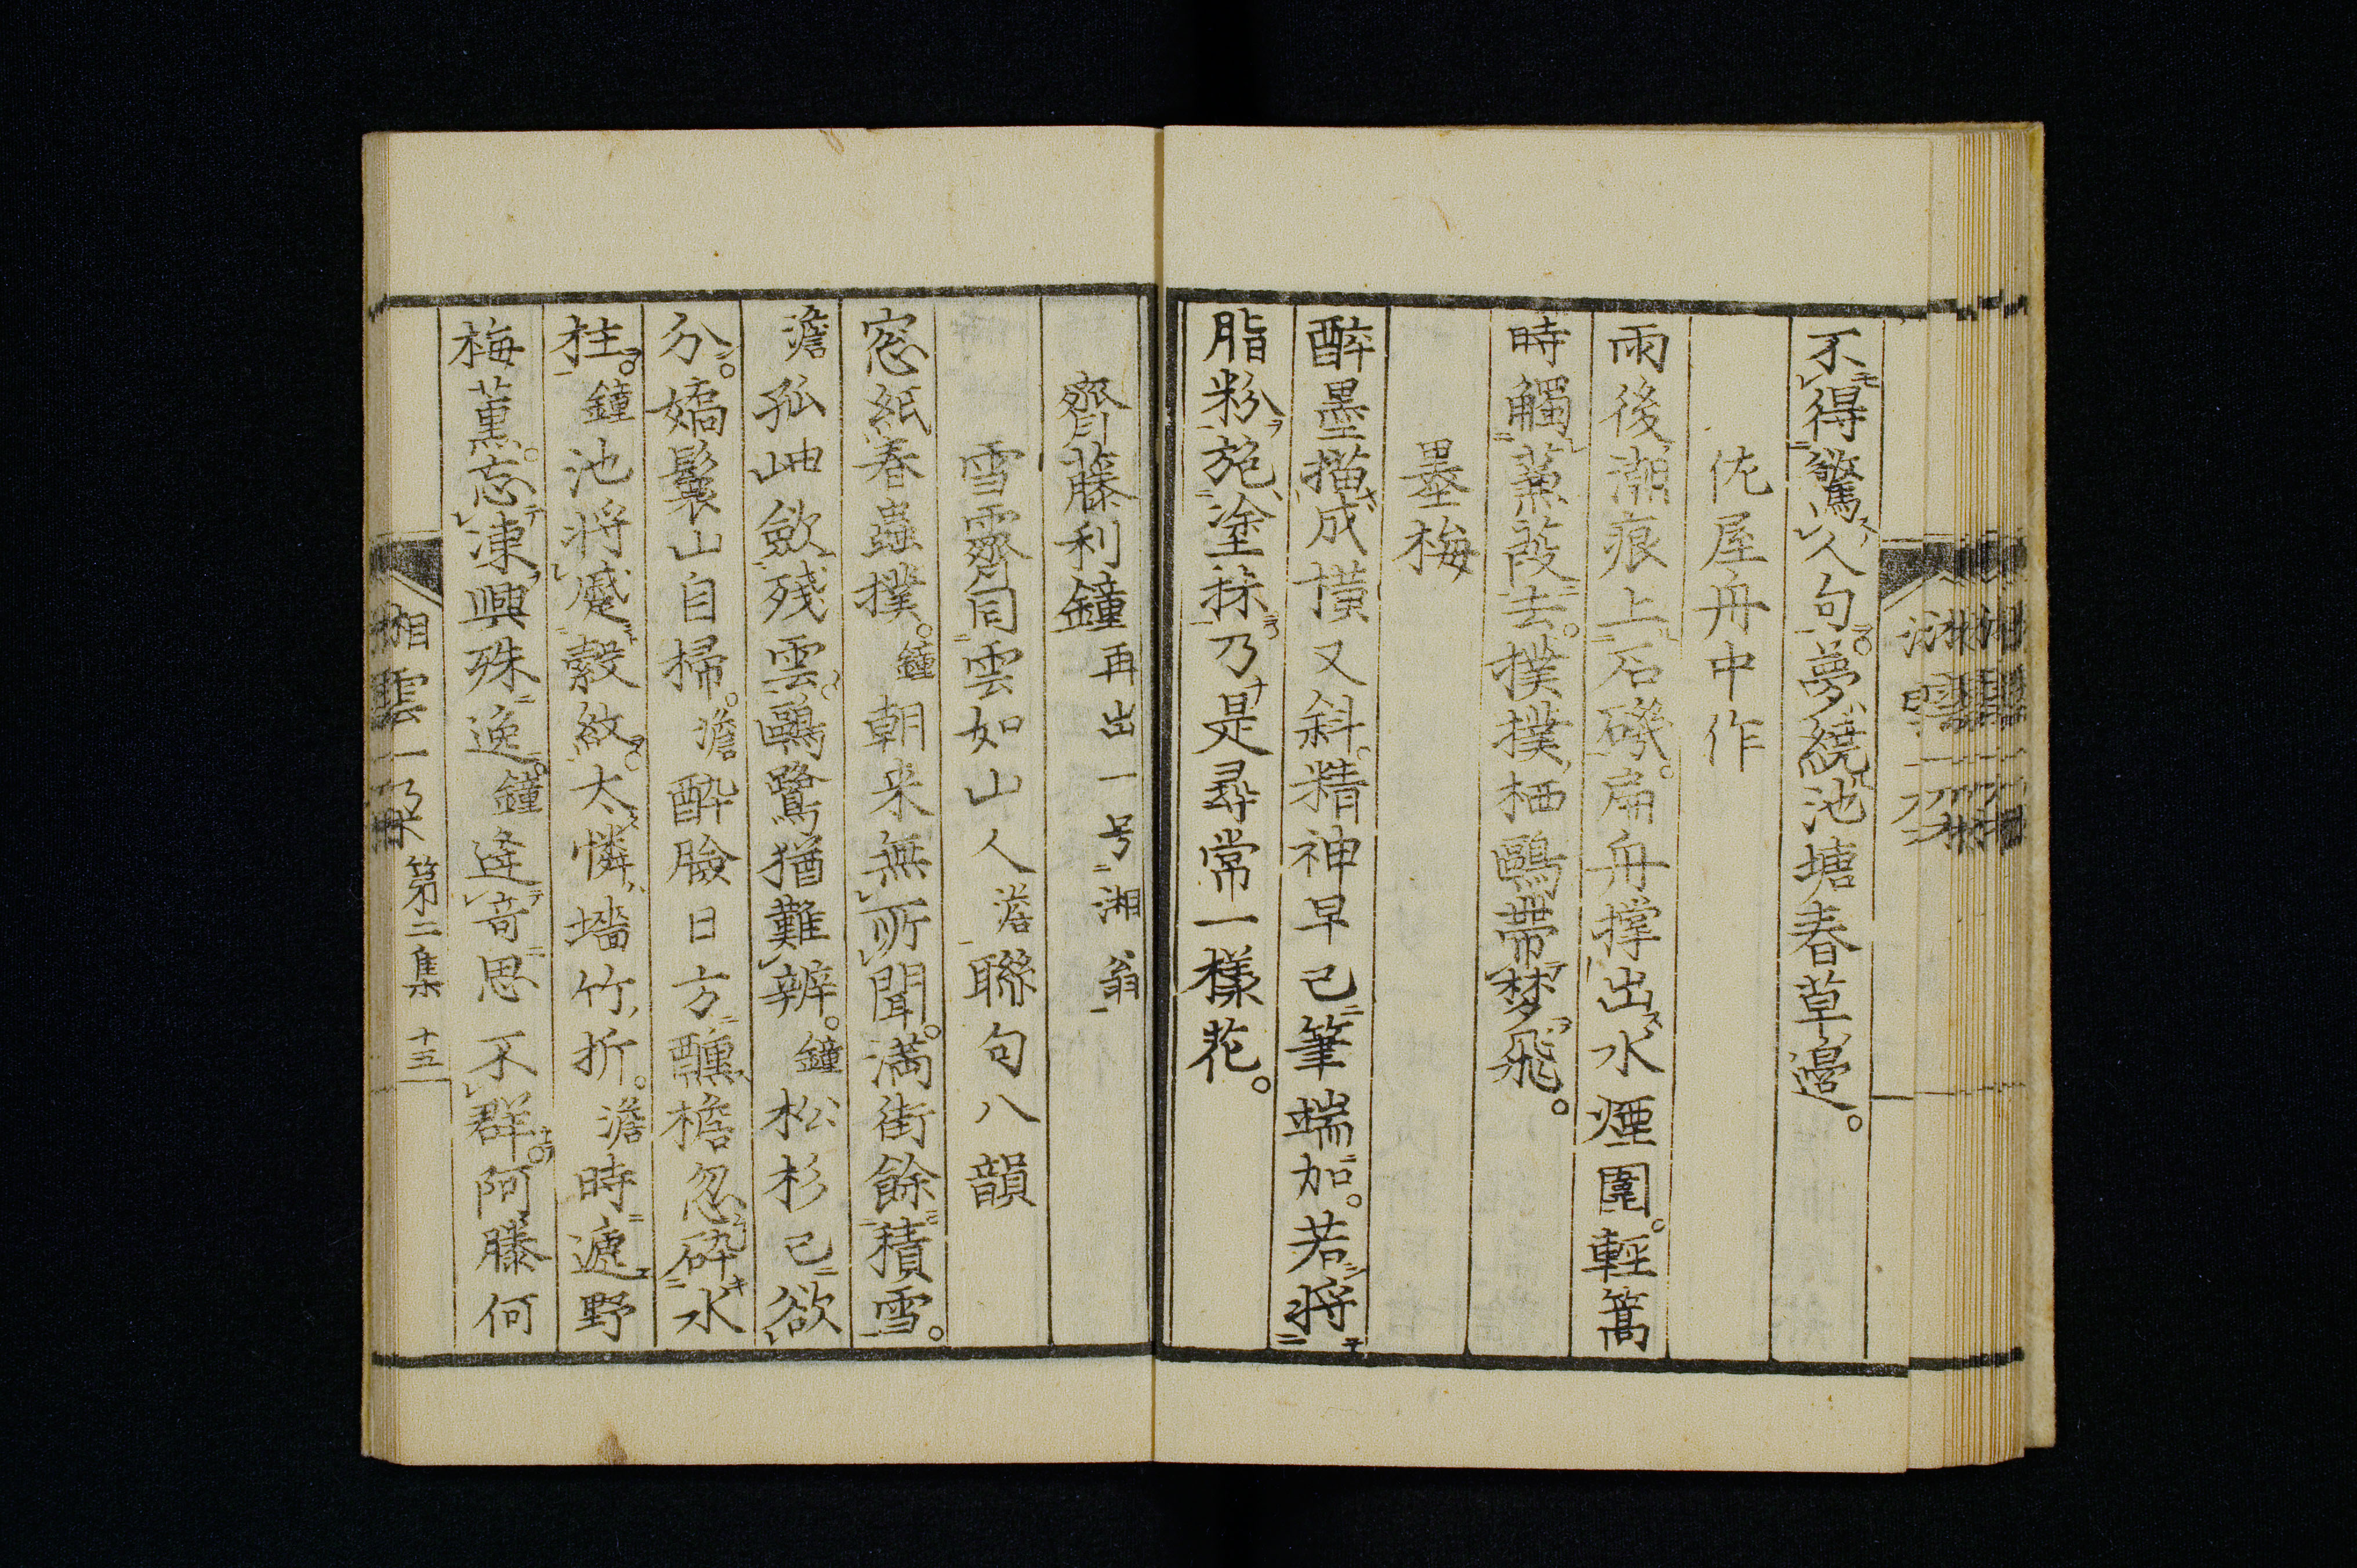 不得驚人句夢繞池塘春草邊。
佐屋舟中作
雨後潮痕上石磯。扁舟撐出水煙圍。輕篙
時觸葉葭去。撲撲栖鷗帶夢飛。
墨梅
醉墨描成横又斜。精神早已筆端加。若將
脂粉施塗抹乃是尋常一樣花。
齋藤利鐘 再出一号湘翁
雪霽同雲如山人 澹 聯句八韻
窓紙春蟲撲。 鐘 朝来無所聞。満街餘積雪。
澹 孤岫斂殘雲。鷗鷺猶難辨。 鐘 松杉已欲
分。嬌鬟山自掃。 澹 醉臉日方醺。檐忽碎水
柱。 鐘 池將蹙縠紋。太憐墻竹折。 澹 時遞野
梅薫。忘凍興殊逸。 鐘 逢奇思不群。阿滕何
湘雲一朶 第二集 十五